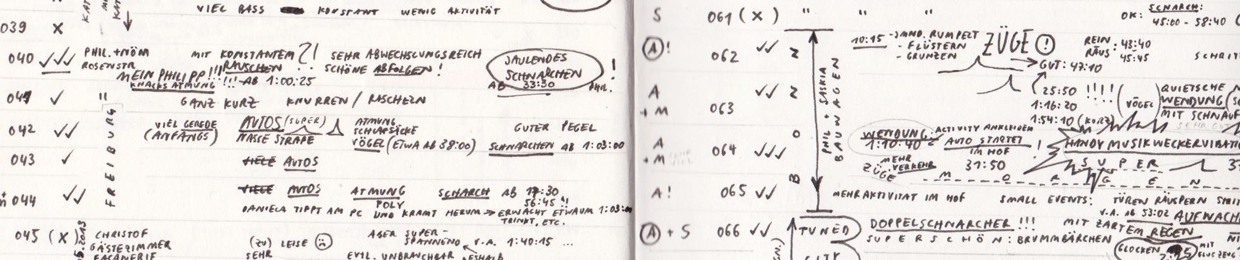 VIEL BASS KONSTANT WENIG AKTIVITÄT
039 X
040 PHIL. + NÖM MIT KONSTANTEM ?! SEHR ABWECHSLUNGSREICH
ROSENSTR RAUSCHEN SCHÖNE ABFOLGEN!
JAULENDES SCHNARCHEN !
AB 33:30 PHIL.
MEIN PHILIPP!!! !!!-AB 1:00:25
KNACKS ATMUNG
041 " GANZ KURZ KNURREN / RASCHELN
FREIBURG
042 VIEL GEREDE (ANFANGS) AUTOS (SUPER) ATMUNG
NASSE STRAßE VÖGEL (ETWA AB 38:00) GUTER PEGEL
SCHNARCHEN AB 1:03:00
043 VIELE AUTOS
044 VIELE AUTOS ATMUNG SCHNARCH AB 17:30
POLY 56:45 !!
DANIELA TIPPT AM PC UND KRAMT HERUM → ERWACHT ETWA UM 1:03:00
TRINKT, ETC.
045 (X) CHRISTOF (ZU) LEISE ABER SUPER-
GÄSTEZIMMER SEHR SPANNEND V.A. 1:40:15 ...
EVTL. UNBRAUCHBAR DESHALB
S 061 (X) " " "
SCHNARCH:
OK: 45:00 - 58:40
A! 062 10:15 - JAND. RUMPELT
- FLÜSTERN
- GRUNZEN
ZÜGE!
REIN: 43:40
RAUS: 45:45
GUT: 47:10
BONN
PHIL + SASKIA
BAUNAGEN
A + M 063 25:50 !!!!
1:16:20
1:54:10 (KURZ)
(VÖGEL)
QUIETSCHE
WENDUNG
MIT SCHNAUF
A + M 064 WENDUNG: 1:10:40
ACTIVITY ANRAINER
AUTO STARTET
IM HOF
31:50
MEHR VERKEHR
ZÜGE
HANDY MUSIKWECKERVIBRATION
SUPER
MORGEN
A! 065 MEHR AKTIVITÄT IM HOF SMALL EVENTS: TÜREN RÄUSPERN
V.A. AB 53:02 AUFWACH
A + S 066 TUNED CITY DOPPELSCHNARCHER!!! MIT ZARTEM REGEN
SUPERSCHÖN: BRUMMBÄRCHEN
GLOCKEN
MIT FLUGZEUG